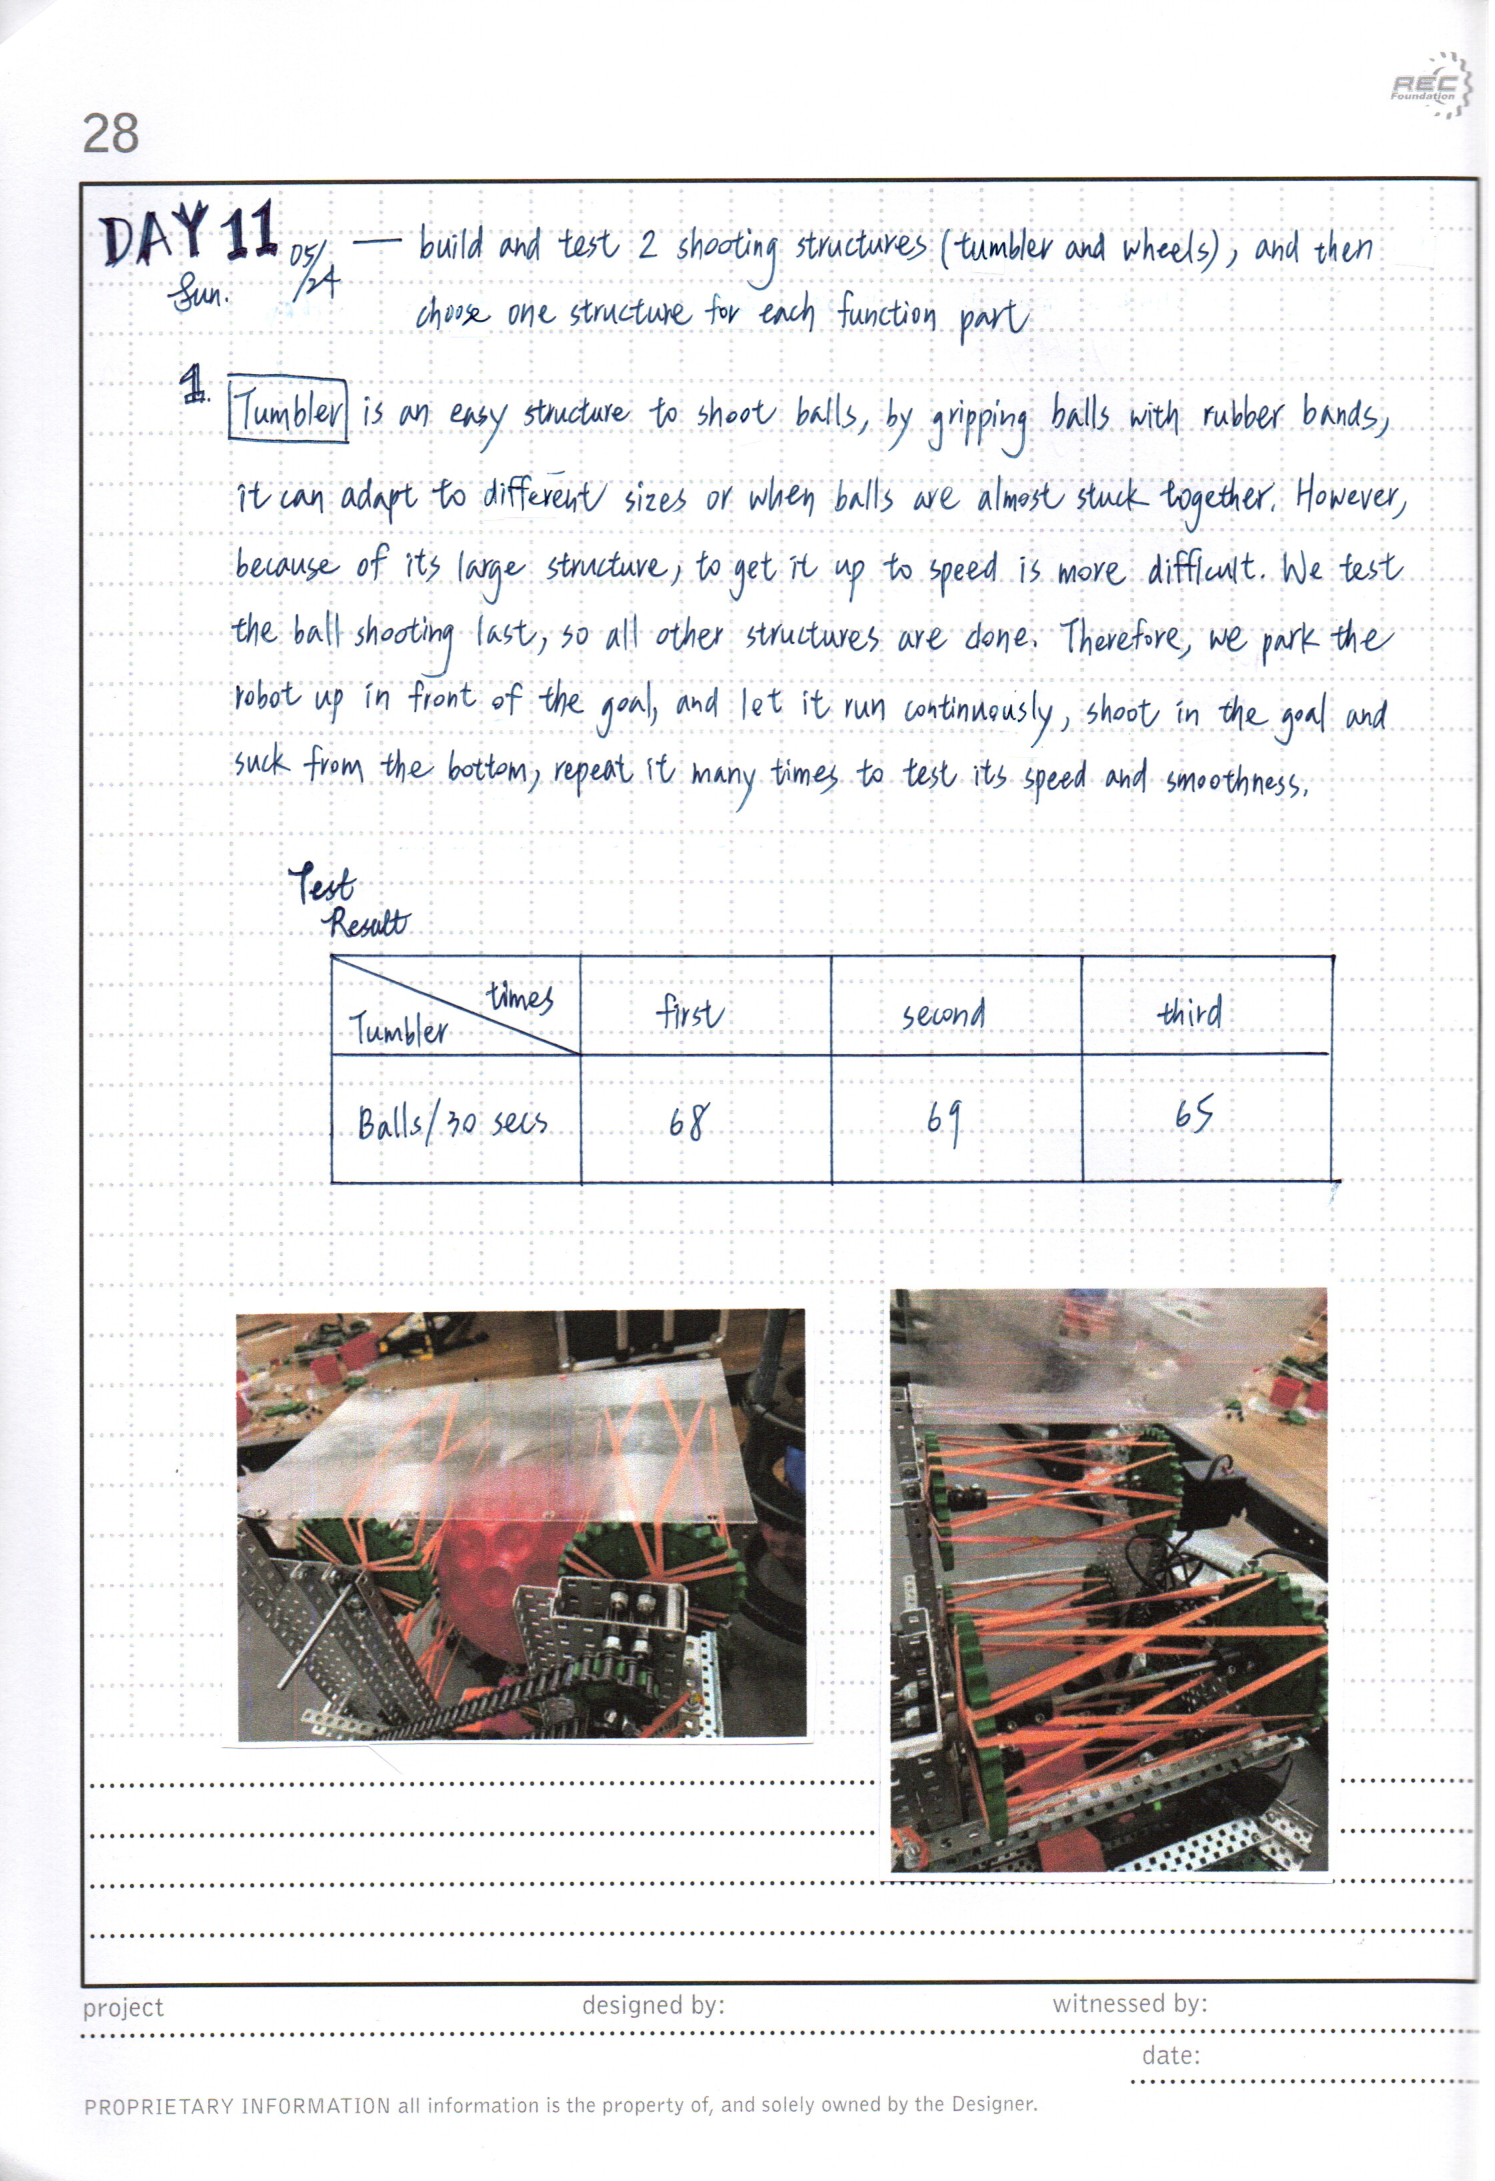 REC
Foundation
28
DAY 11 05/24 — build and test 2 shooting structures (tumbler and wheels), and then
Sun.
choose one structure for each function part
1. Tumbler is an easy structure to shoot balls, by gripping balls with rubber bands,
it can adapt to different sizes or when balls are almost stuck together. However,
because of its large structure, to get it up to speed is more difficult. We test
the ball shooting last, so all other structures are done. Therefore, we park the
robot up in front of the goal, and let it run continuously, shoot in the goal and
suck from the bottom, repeat it many times to test its speed and smoothness.
Test
Result
times
Tumbler
first second third
Balls/30 secs 68 69 65
project designed by: witnessed by:
date:
PROPRIETARY INFORMATION all information is the property of, and solely owned by the Designer.